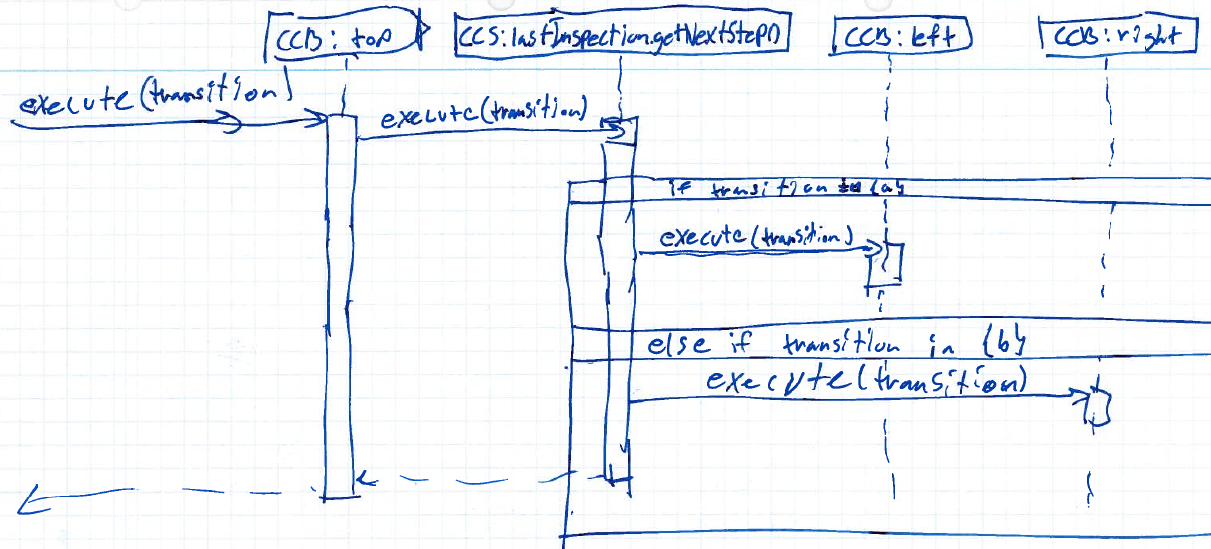 CCB: top
CCS: lastInspection.getNextStep()
CCB: left
CCB: right
execute(transition)
execute(transition)
if transition in {a}
execute(transition)
else if transition in {b}
execute(transition)